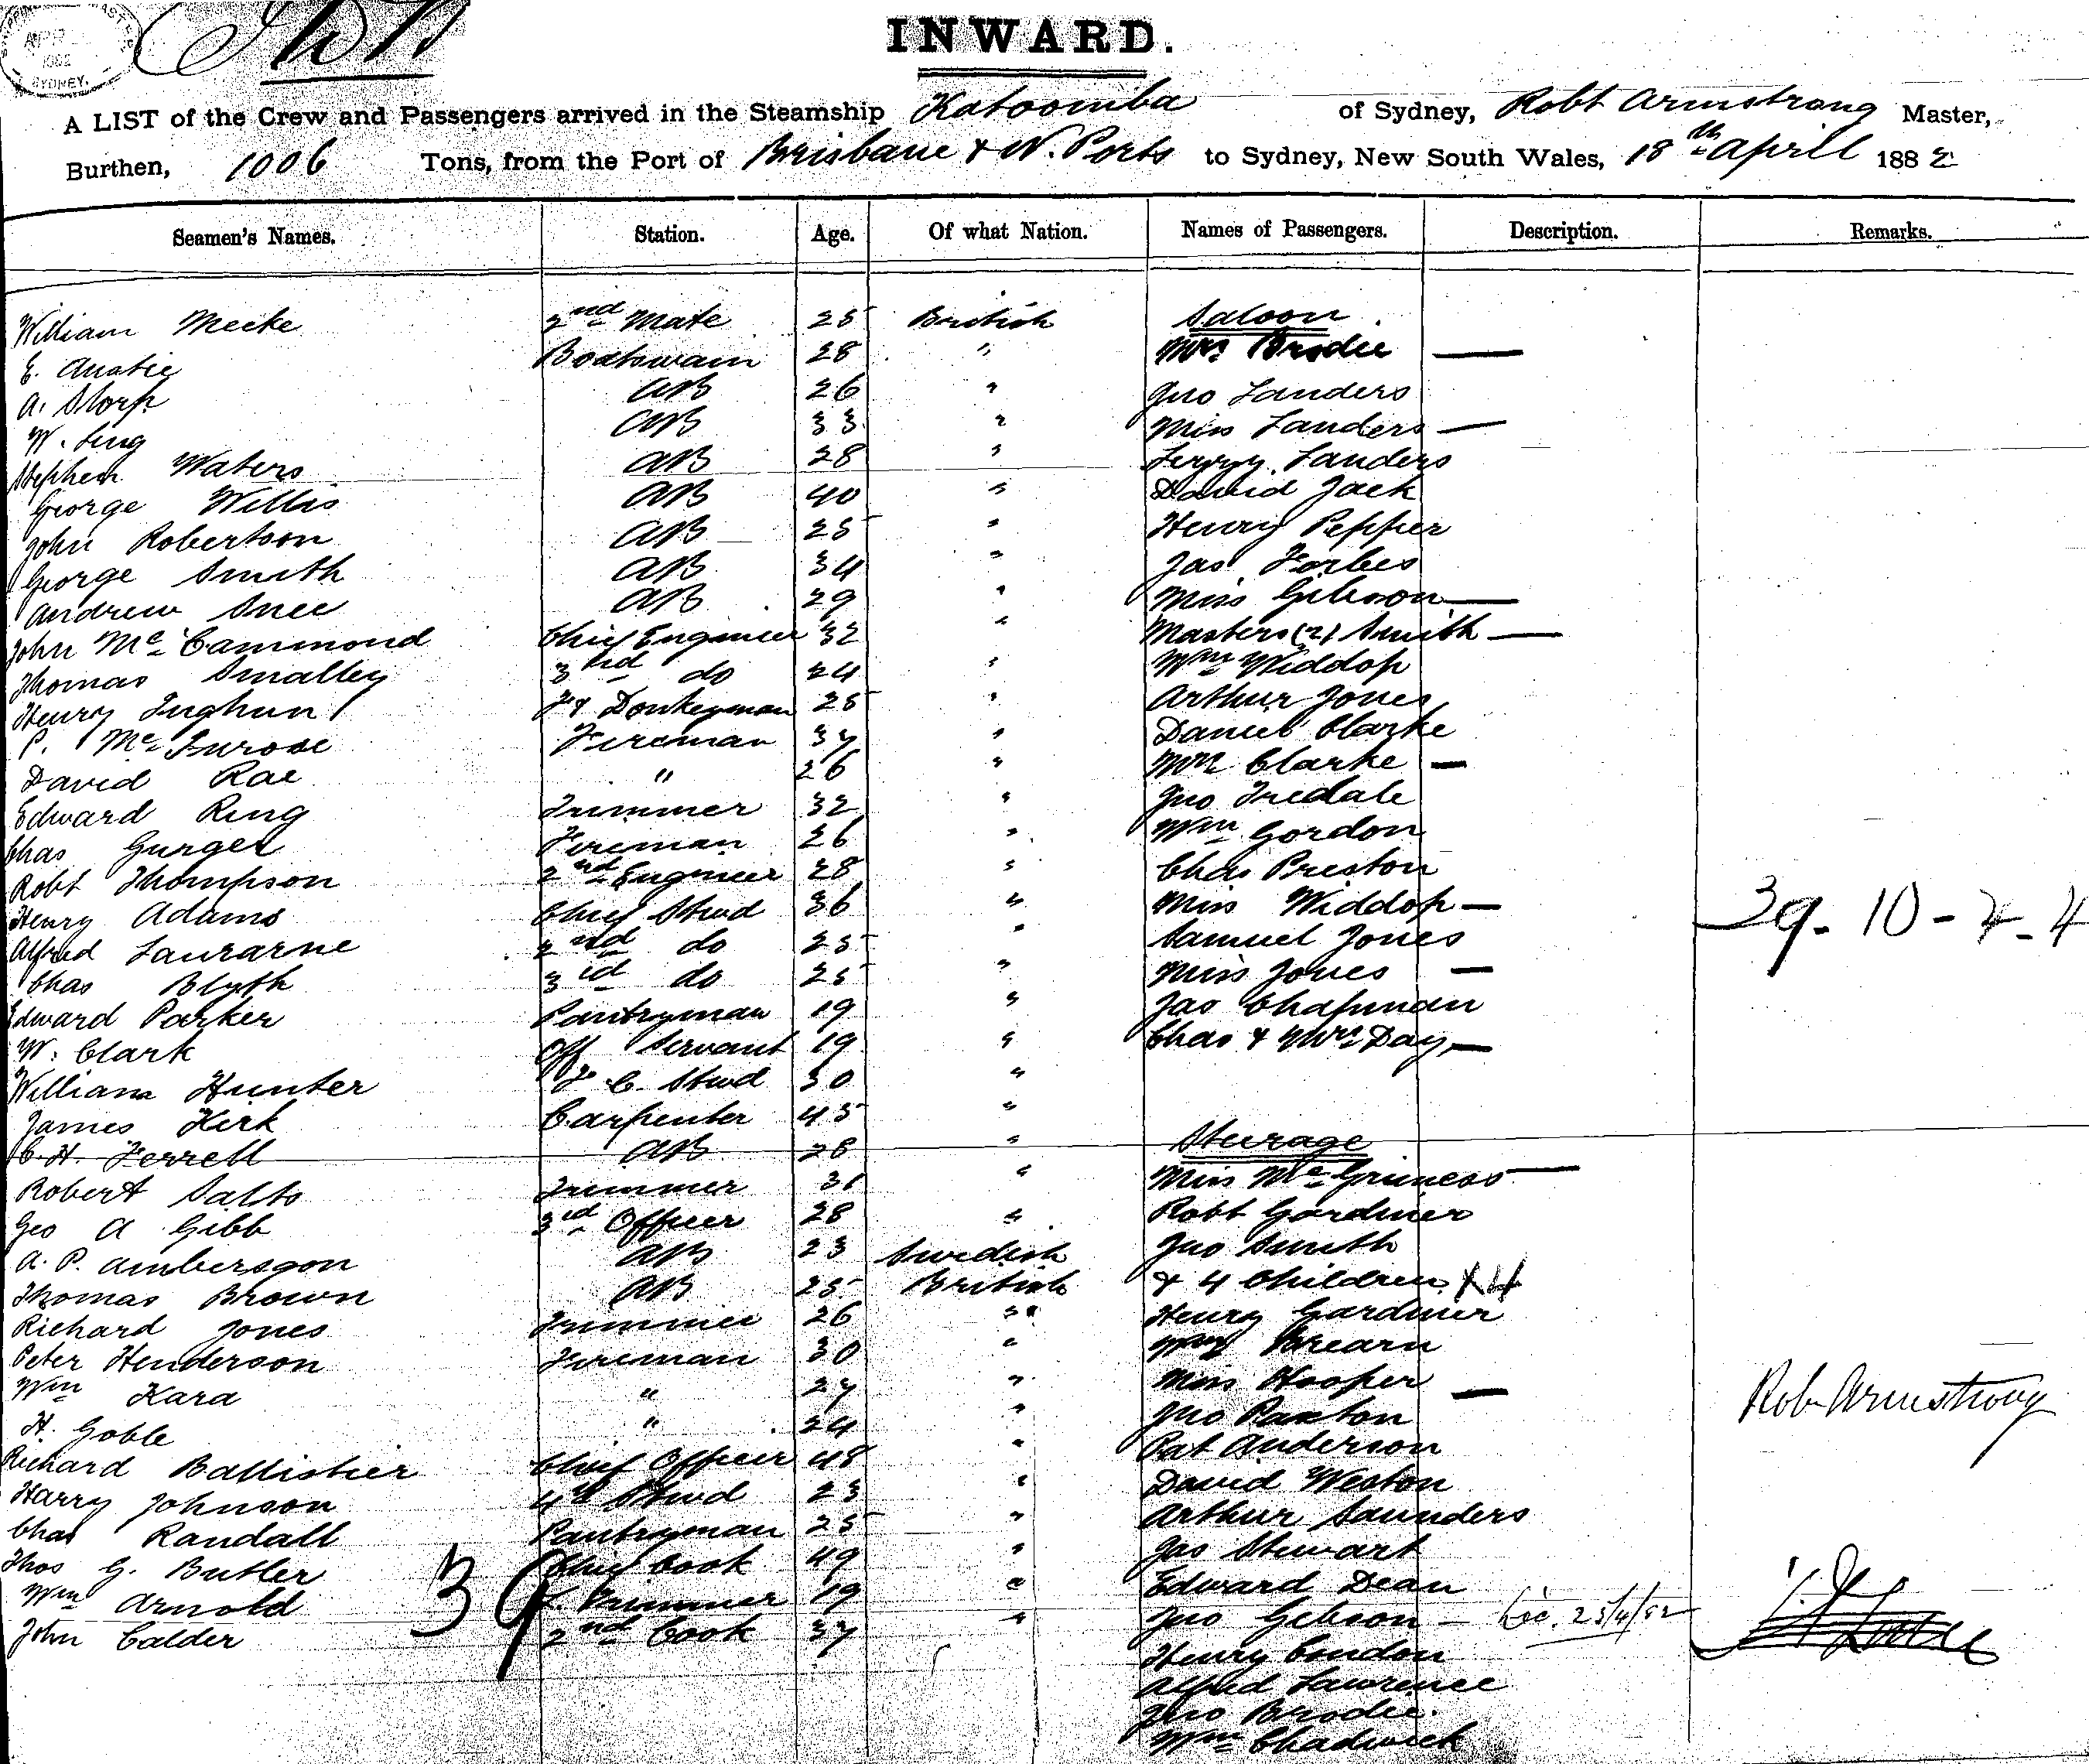 INWARD.
SYDNEY.
A LIST of the Crew and Passengers arrived in the Steamship Katoomba of Sydney, Robt Armstrong Master,
Burthen, 1006 Tons, from the Port of Brisbane & N. Ports to Sydney, New South Wales, 18th April 1882
Seamen's Names. Station. Age. Of what Nation. Names of Passengers. Description. Remarks.
William Meeke 2nd Mate 25 British Saloon
E. Anstie Boatswain 28 " Mrs Brodie —
A. Storp AB 26 " Jno Landers
W. Ling AB 33 " Miss Landers —
Stephen Waters AB 28 " Landers
George Willis AB 40 " David Jack
John Robertson AB 25 " Henry Pepper
George Smith AB 34 " Jas Forbes
Andrew Snee AB 29 " Miss Gibson —
John McCammond Chief Engineer 32 " Masters (2) Smith —
Thomas Smalley 3rd do 24 " Wm Widdop
Henry Donkeyman 25 " Arthur Jones
P. Fireman 37 " Daniel Clarke
David Rae " 26 " Mrs Clarke —
Edward Ring Trimmer 32 " Jno Iredale
Chas Gurgel Fireman 26 " Wm Gordon
Robt Thompson 2nd Engineer 28 " Chas Preston
Henry Adams Chief Stwd 36 " Miss Widdop — 39-10-7-4
Alfred 2nd do 25 " Samuel Jones
Chas Blyth 3rd do 25 " Miss Jones —
Edward Parker Pantryman 19 " Jas Chapman
W. Clark Off Servant 19 " Chas & Mrs Day —
William Hunter F C. Stwd 30 "
James Kirk Carpenter 45 "
C. H. Ferrell AB 28 " Steerage
Robert Salts Trimmer 31 " Miss McGuiness —
Geo A Gibb 3rd Officer 28 " Robt Gardiner
A. P. Ambersson AB 23 Swedish Jno Smith
Thomas Brown AB 25 British & 4 Children X4
Richard Jones Trimmer 26 " Henry Gardiner
Peter Henderson Fireman 30 " Wm Brearn
Wm Kara " 27 " Miss Hooper —
H. Goble " 24 " Jno Paxton
Robt Armstrong
Richard Ballistier Chief Officer 48 " Pat Anderson
Harry Johnson 4th Stwd 23 " David Weston
Chas Randall Pantryman 25 " Arthur Saunders
Thos G. Butler Chief Cook 49 " Jas Stewart
Wm Arnold Trimmer 19 " Edward Dean
John Calder 2nd Cook 37 " Jno Gibson — 25/4/82
39
Henry Condon
Alfred Lawrence
Jno Brodie.
Wm Chadwick